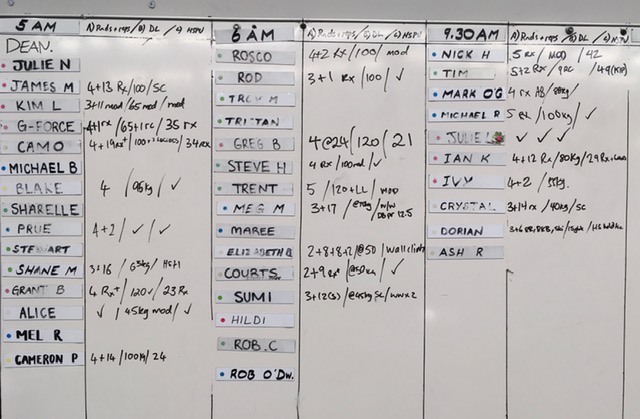 5 AM A) Rnds + reps / B) DL / C) HSPU
DEAN.
JULIE N
JAMES M 4+13 Rx/100/SC
KIM L 3+11 mod/65 mod/mod
G-FORCE 4+1 rx/65+1rc/35 rx
CAMO 4+19 rx+/100
MICHAEL B
BLAKE 4 / 96kg / ✓
SHARELLE
PRUE 4+2 / ✓ / ✓
STEWART
SHANE M 3+16 / 65kg /
GRANT B 4 Rx+/120✓/23 Rx
ALICE ✓ / 45kg mod / ✓
MEL R
CAMERON P 4+14/100kg/24
6 AM A) Rnds + reps / B) DL / C) HSPU
ROSCO 4+2 Rx/100/mod
ROD 3+1 Rx/100/✓
TROY M
TRISTAN
GREG B 4@24/120/21
STEVE H 4 Rx/100md/✓
TRENT 5 /120+LL/ MOD
MEG M 3+17 / 12.5
MAREE
ELIZABETH G 2+8+8+12/@50/wall climb
COURTS 2+9 Rx/@50kg/ ✓
SUMI 3+12(s)/@45kg SC/
HILDI
ROB.C
ROB O'DW.
9.30AM A) Rnds + reps / B) DL / C)
NICK H 5 RX/MOD/42
TIM 5+2 Rx/ /49(KIP)
MARK O'G 4 rx AB/80kg/
MICHAEL R 5 Rx/100kg/✓
JULIE L ✓ ✓ ✓
IAN K 4+12 Rx/80kg/29 Rx
IVY 4+2 / 55kg.
CRYSTAL 3+14 rx/40kg/SC
DORIAN 3+6
ASH R